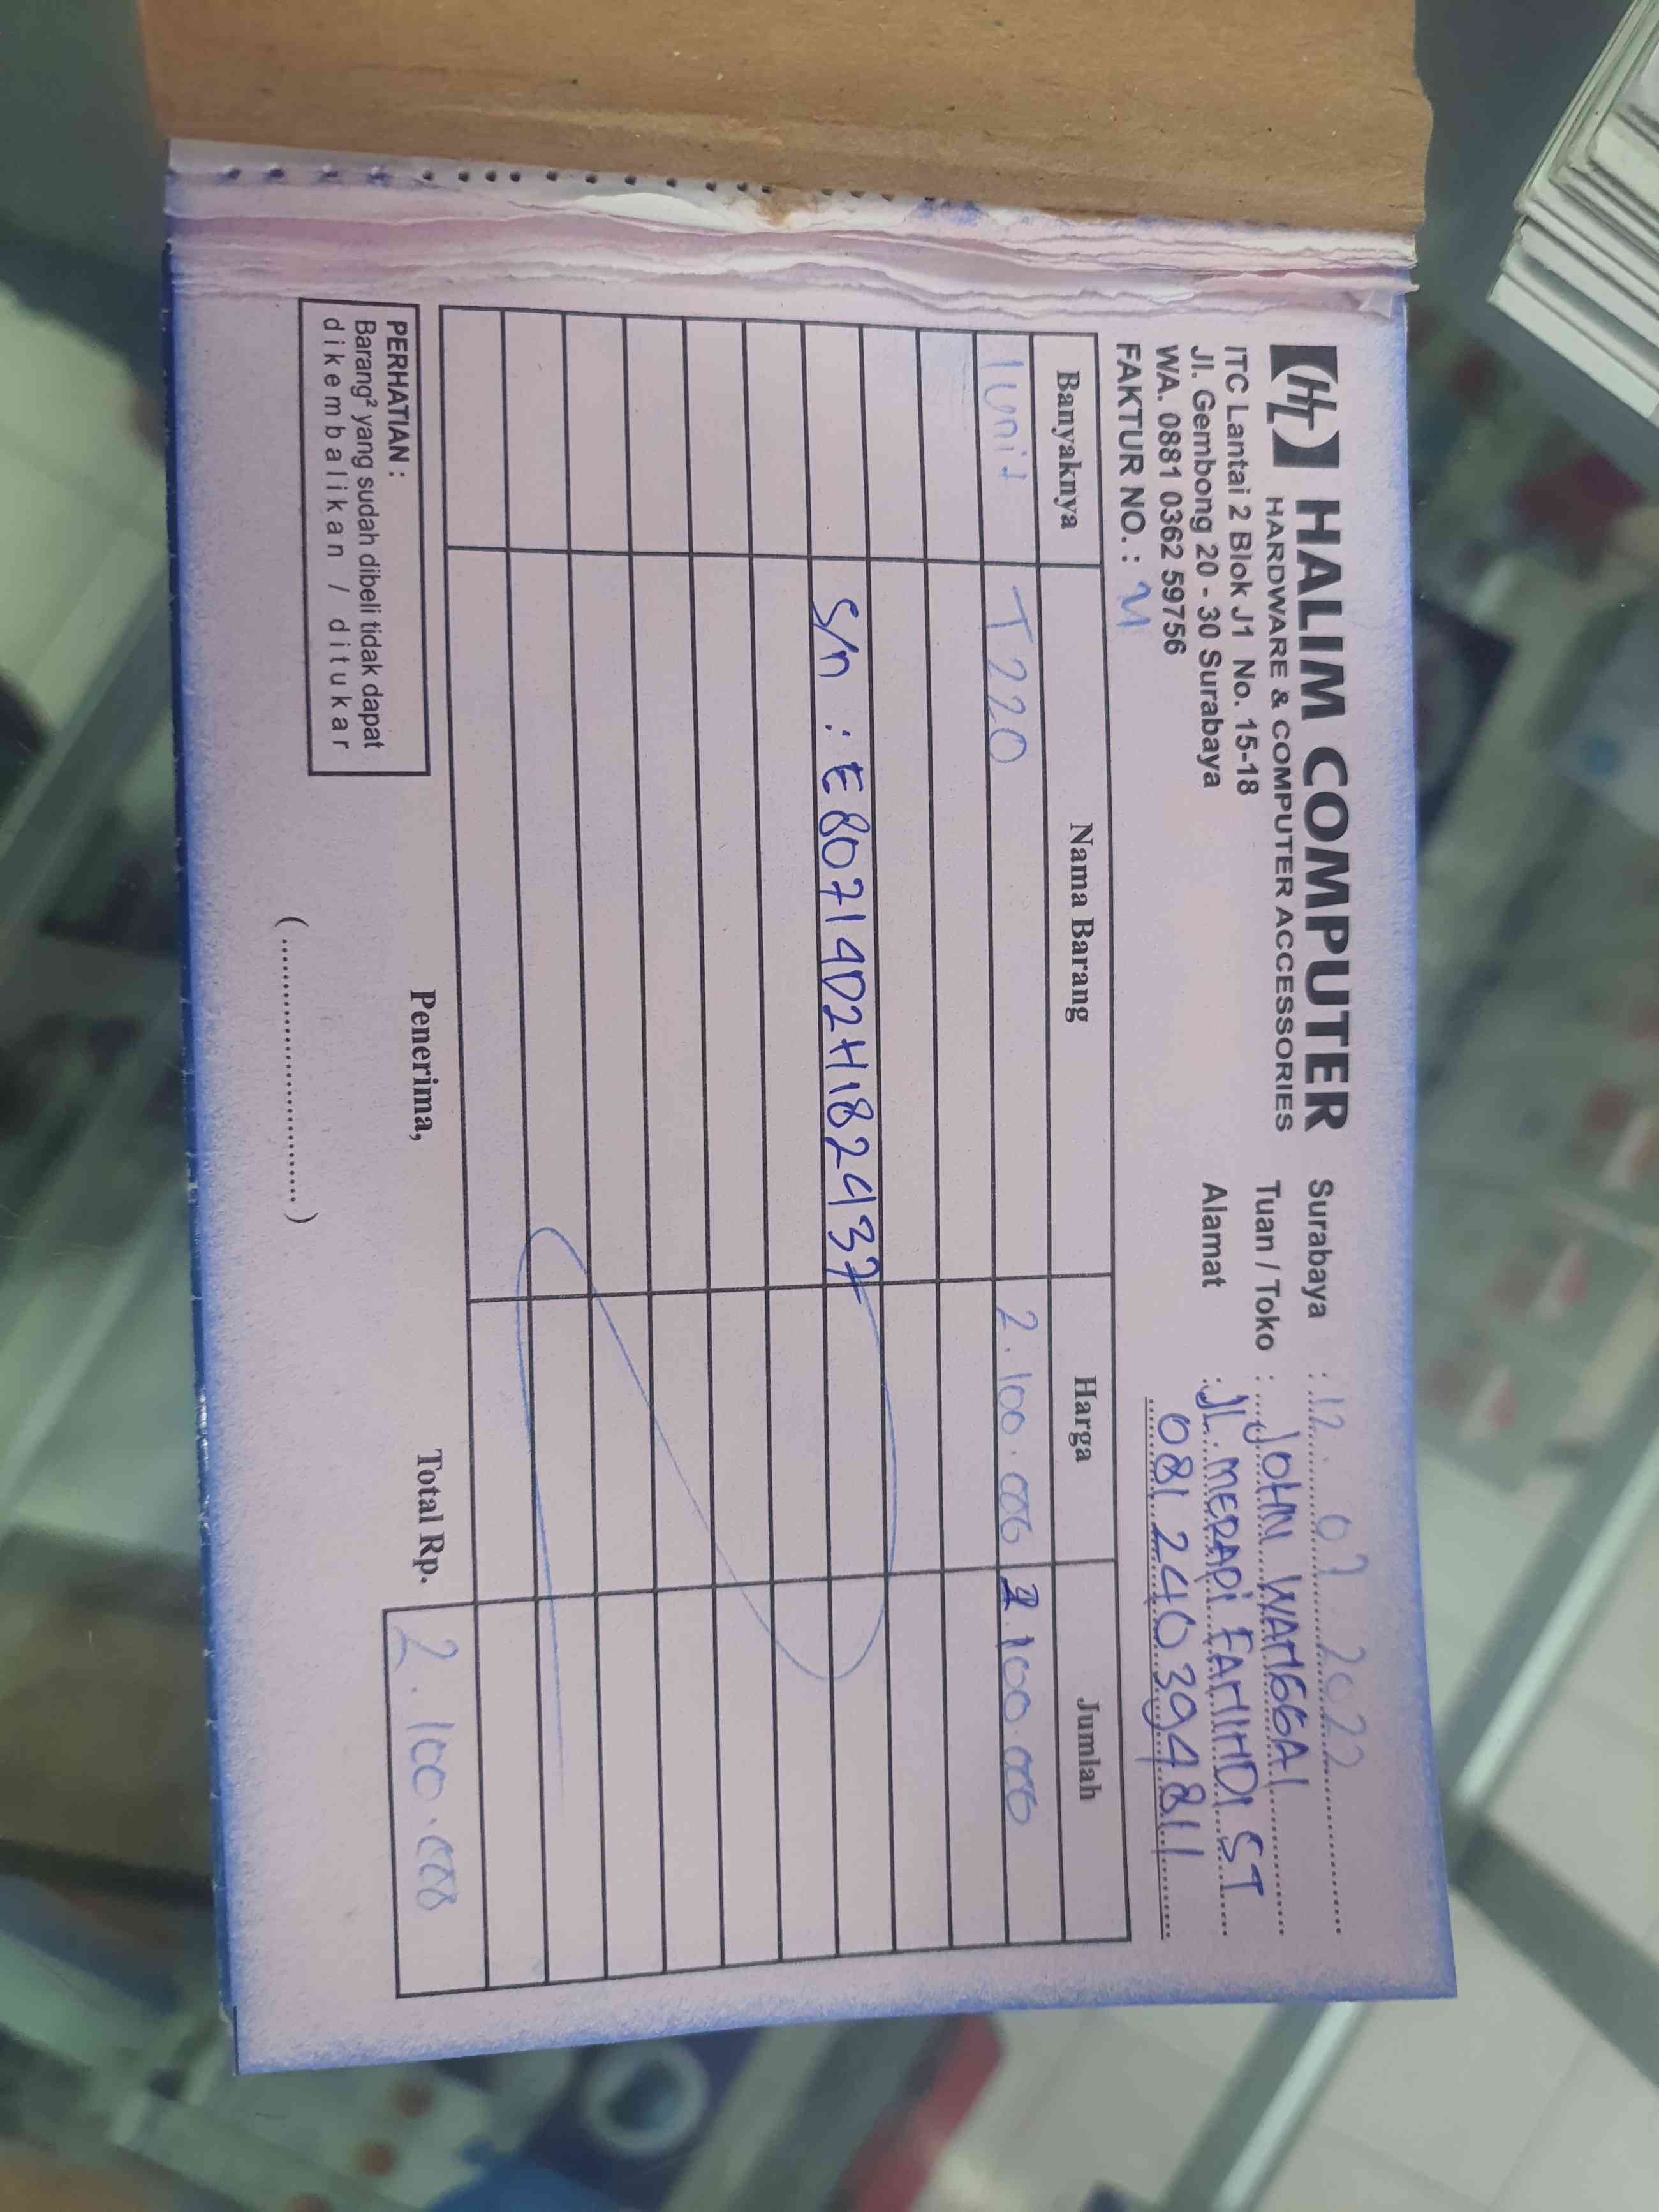 HL HALIM COMPUTER
HARDWARE & COMPUTER ACCESSORIES
ITC Lantai 2 Blok J1 No. 15-18
Jl. Gembong 20 - 30 Surabaya
WA. 0881 0362 59756
FAKTUR NO. :
Surabaya : 12 07 2022
Tuan / Toko : JOHN WANGGAI
Alamat : JL. MERAPI FAHINDI ST
081 240 394 811
Banyaknya Nama Barang Harga Jumlah
1 unit T 220 2.100.000 2.100.000
S/n : E80714D2H182437
Penerima,
Total Rp. 2.100.000
PERHATIAN :
Barang² yang sudah dibeli tidak dapat
dikembalikan / ditukar
(.................................)